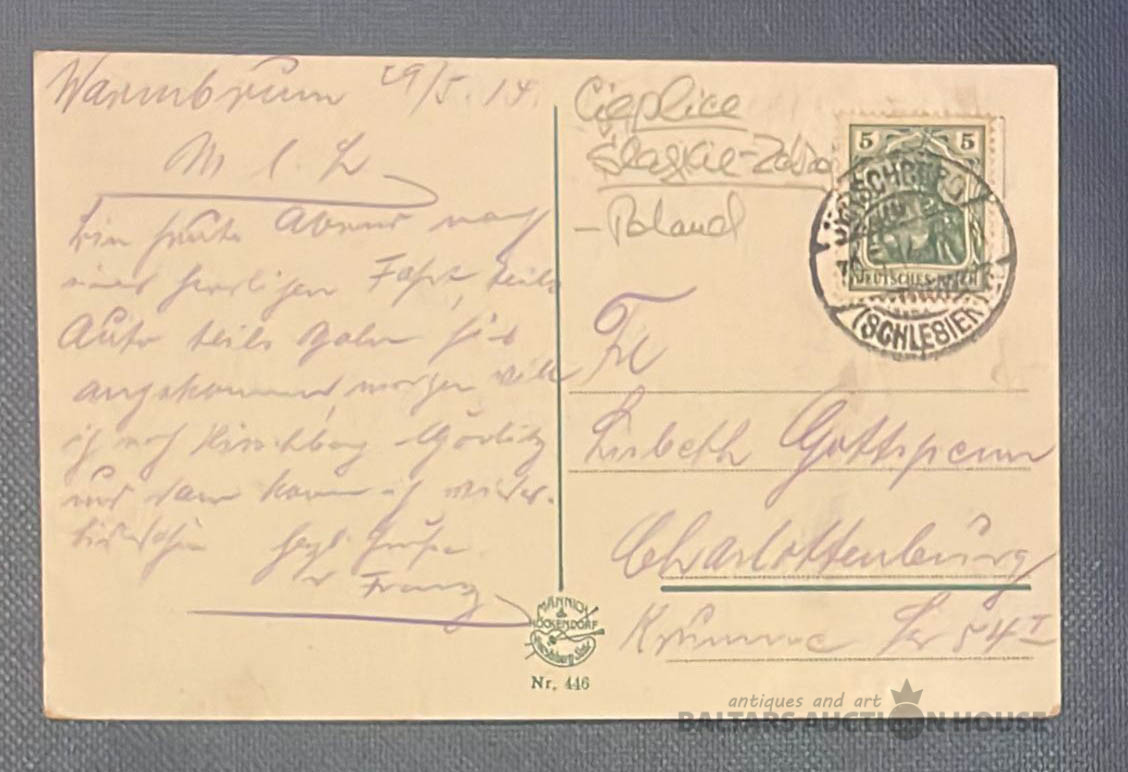 Warmbrunn 29/5.14.
M. l. L
Bin heute Abend nach
einer herrlichen Fahrt, teils
Auto teils Bahn hier
angekommen, morgen will
ich nach Hirschberg Görlitz
und dann komme ich wieder.
herzl. Grüße
Franz
Cieplice
Śląskie-Zdrój
- Poland
5 5
DEUTSCHES REICH
(SCHLESIEN)
Frl
Lisbeth
Charlottenburg
Krumme Str 54 I
MÄNNICH
&
HÖCKENDORF
Hirschberg-Schl.
Nr. 446
antiques and art
BALTARS AUCTION HOUSE